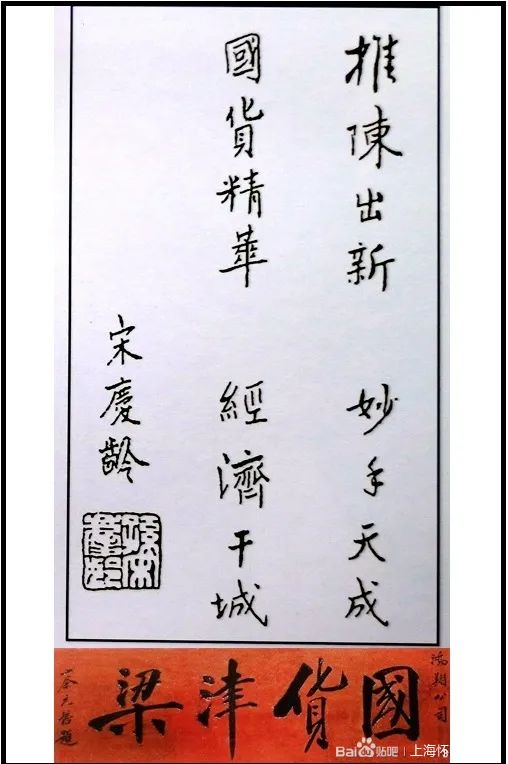 推陳出新 妙手天成
國貨精華 經濟干城
宋慶齡
鴻翔公司
國貨津梁
蔡元培題
Bai 贴吧 | 上海怀